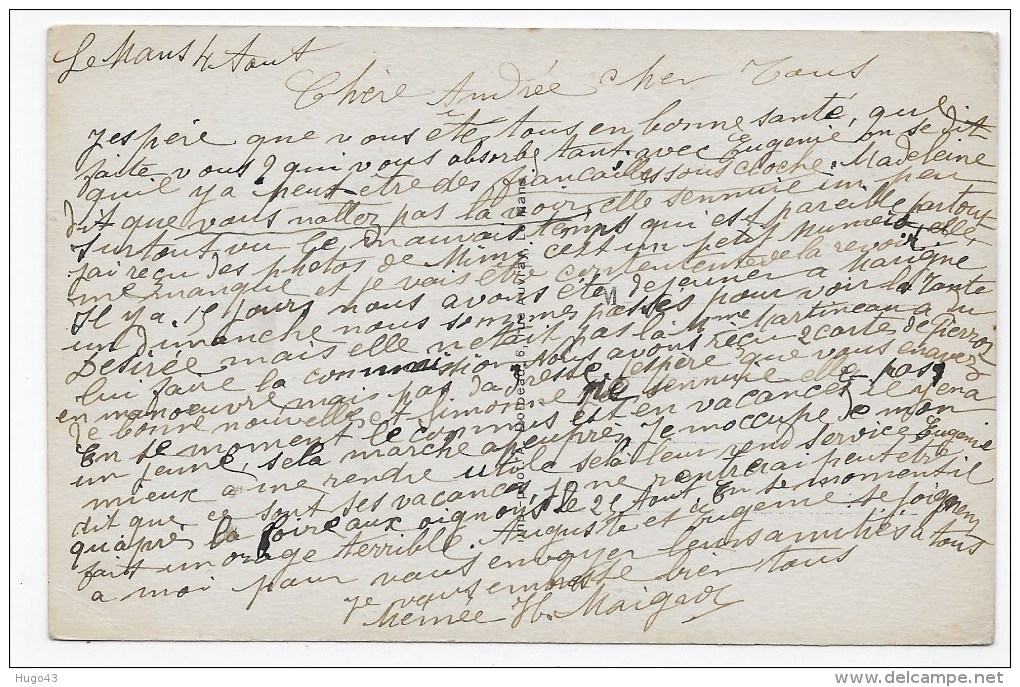 Le Mans 4 Aout
Chère Andrée Cher Tous
J'espère que vous ête tous en bonne santé, que
faite vous? qui vous absorbe tant avec Eugenie on se dit
qu'il y a peut être des fiancailles sous cloche. Madeleine
dit que vous n'allez pas la voir, elle sennuie un peu
surtout vu le mauvais temps qui est pareille partout
j'ai reçu des photos de Mimi c'est un petit numéro, elle
me manque et je vais être contentente de la revoir
Il y a 15 jours nous avons été déjeuner a Marigné
un dimanche nous sommes passés pour voir la Tante
Désirée mais elle n'était pas là Mme Martineau a du
lui faire la commission. Nous avons reçu 2 cartes de Pierrot
en manoeuvre mais pas d'adresse j'espère que vous en avez
de bonne nouvelle et Simonne ne sennuie elle pas,
En se moment le commis est en vacances il y en a
un jeune, sela marche apeuprès. Je moccupe de mon
mieux a me rendre utile sela leur rend service, Eugenie
dit que ce sont ses vacances, je ne rentrerai peut être
qu'après la foire aux oignons le 25 Aout. En se moment il
fait un orage terrible. Auguste et Eugenie se joignent
a moi pour vous envoyer leurs amitiés a tous
Je vous embrasse bien tous
Mémée H. Maigrot
Le Mans.
M
Hugo43
www.delcampe.net